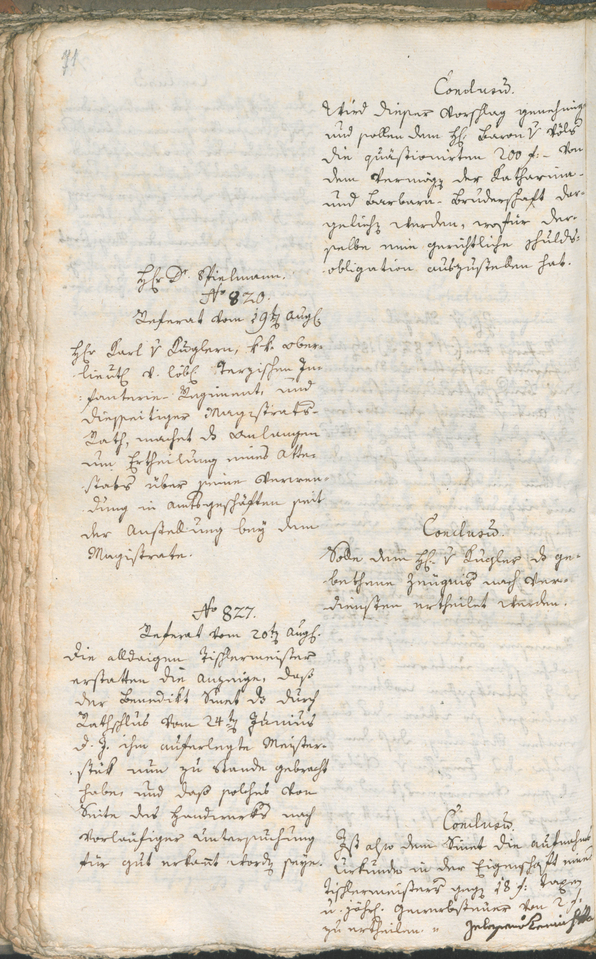 71.
Conclusum.
Wird dieser Vorschlag genehmigt
und sollen dem H: Baron v Völs
die quästionirten 200 f: von
dem Vermögen der Katharina-
und Barbara-Bruderschaft dar-
geliehen werden, wofür der-
selbe eine gerichtliche Schulds-
obligation auszustellen hat.
Hr Dr Spielmann.
No 820.
Referat vom 19ten Augt
Hr Karl v Kuglern, kk. Ober-
lieut. v. löbl. Terzischen In-
fanterie-Regiment, und
diesseitiger Magistrats-
Rath, machet das Anlangen
um Ertheilung eines Atte-
stats über seine Verwen-
dung in Amtsgeschäften seit
der Anstellung bey dem
Magistrate.
Conclusum.
Solle dem H: v Kugler das ge-
bethene Zeugnis nach Ver-
diensten ertheilet werden.
No 827.
Referat vom 20ten Augt.
Die alldaigen Tischlermeister
erstatten die Anzeige, daß
der Benedikt das durch
Rathschlus vom 24ten Junius
d. J. ihm auferlegte Meister-
stük nun zu Stande gebracht
habe, und daß solches von
Seite des Handwerks nach
vorläufiger Untersuchung
für gut erkannt worden seye.
Conclusum.
Ist also dem die Aufnahms
Urkunde in der Eigenschaft eines
Tischlermeisters gegen 18 f: Taxen
u. jährl. Gewerbsteuer von 2 f.
zu ertheilen.